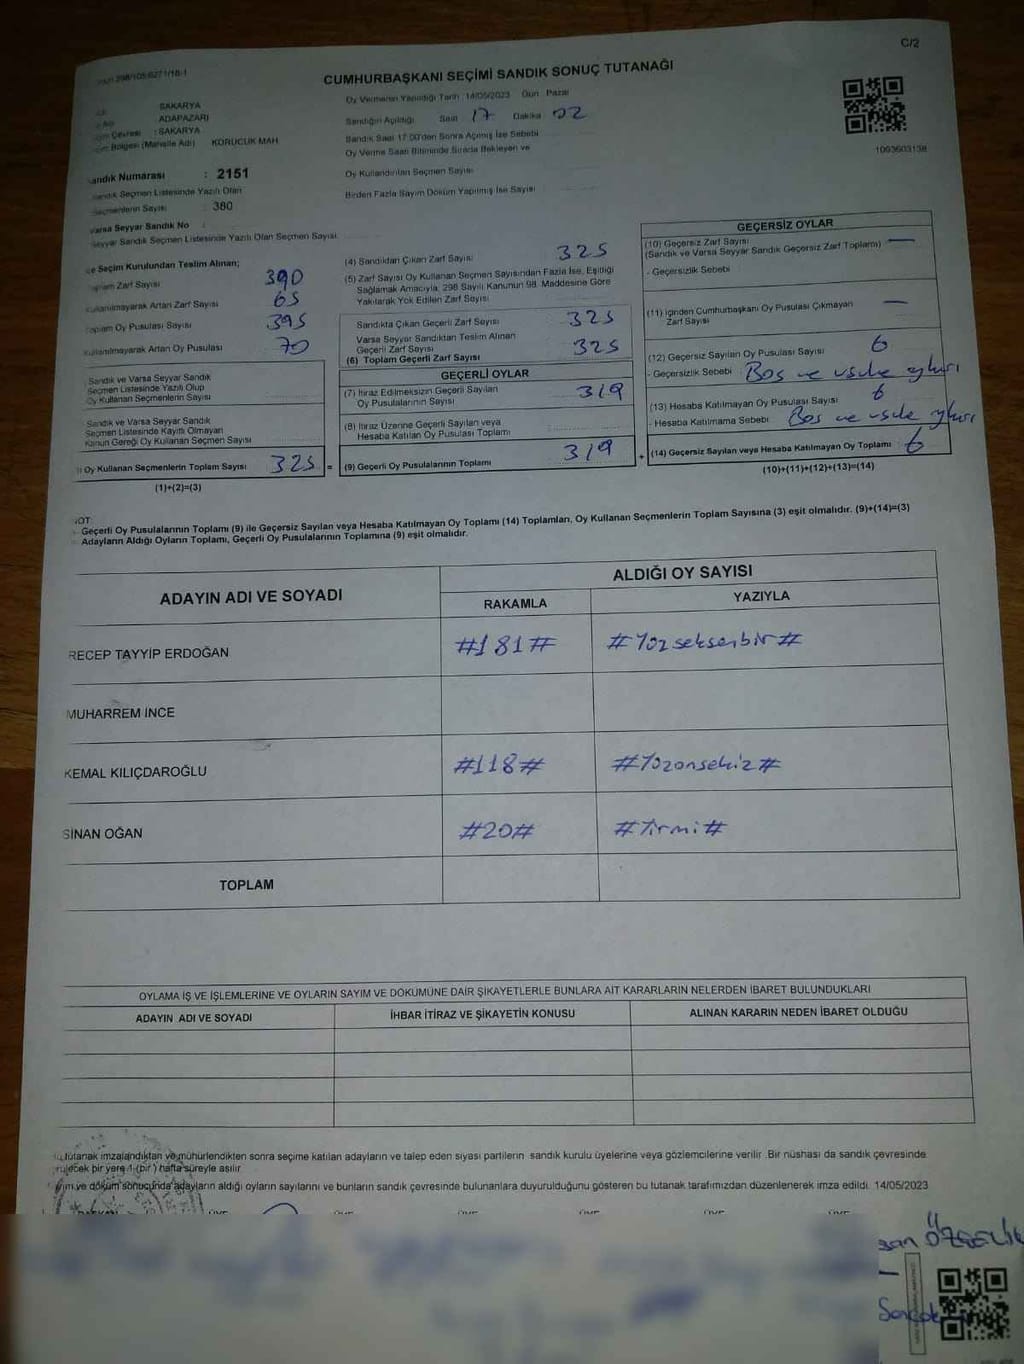 C/2
CUMHURBAŞKANI SEÇİMİ SANDIK SONUÇ TUTANAĞI
SAKARYA
ADAPAZARI
: SAKARYA
Bölgesi (Mahalle Adı) KORUCUK MAH.
Sandık Numarası : 2151
Sandık Seçmen Listesinde Yazılı Olan
Seçmenlerin Sayısı : 380
Varsa Seyyar Sandık No :
Seyyar Sandık Seçmen Listesinde Yazılı Olan Seçmen Sayısı
Oy Vermenin Yapıldığı Tarih : 14/05/2023 Gün Pazar
Sandığın Açıldığı Saat 17 Dakika 02
Sandık Saat 17.00'den Sonra Açılmış İse Sebebi
Oy Verme Saati Bitiminde Sırada Bekleyen ve
Oy Kullandırılan Seçmen Sayısı
Birden Fazla Sayım Döküm Yapılmış İse Sayısı
1093603138
İlçe Seçim Kurulundan Teslim Alınan;
Toplam Zarf Sayısı 390
Kullanılmayarak Artan Zarf Sayısı 65
Toplam Oy Pusulası Sayısı 395
Kullanılmayarak Artan Oy Pusulası 70
Sandık ve Varsa Seyyar Sandık
Seçmen Listesinde Yazılı Olup
Oy Kullanan Seçmenlerin Sayısı
Sandık ve Varsa Seyyar Sandık
Seçmen Listesinde Kayıtlı Olmayan
Kanun Gereği Oy Kullanan Seçmen Sayısı
Oy Kullanan Seçmenlerin Toplam Sayısı 325 =
(1)+(2)=(3)
(4) Sandıktan Çıkan Zarf Sayısı 325
(5) Zarf Sayısı Oy Kullanan Seçmen Sayısından Fazla İse, Eşitliği
Sağlamak Amacıyla, 298 Sayılı Kanunun 98. Maddesine Göre
Yakılarak Yok Edilen Zarf Sayısı
Sandıkta Çıkan Geçerli Zarf Sayısı 325
Varsa Seyyar Sandıktan Teslim Alınan
Geçerli Zarf Sayısı
(6) Toplam Geçerli Zarf Sayısı 325
GEÇERLİ OYLAR
(7) İtiraz Edilmeksizin Geçerli Sayılan
Oy Pusulalarının Sayısı 319
(8) İtiraz Üzerine Geçerli Sayılan veya
Hesaba Katılan Oy Pusulası Toplamı
(9) Geçerli Oy Pusulalarının Toplamı 319 +
GEÇERSİZ OYLAR
(10) Geçersiz Zarf Sayısı —
(Sandık ve Varsa Seyyar Sandık Geçersiz Zarf Toplamı)
- Geçersizlik Sebebi
(11) İçinden Cumhurbaşkanı Oy Pusulası Çıkmayan —
Zarf Sayısı
(12) Geçersiz Sayılan Oy Pusulası Sayısı 6
- Geçersizlik Sebebi : Boş ve usule aykırı
(13) Hesaba Katılmayan Oy Pusulası Sayısı 6
- Hesaba Katılmama Sebebi : Boş ve usule aykırı
(14) Geçersiz Sayılan veya Hesaba Katılmayan Oy Toplamı : 6
(10)+(11)+(12)+(13)=(14)
NOT:
Geçerli Oy Pusulalarının Toplamı (9) ile Geçersiz Sayılan veya Hesaba Katılmayan Oy Toplamı (14) Toplamları, Oy Kullanan Seçmenlerin Toplam Sayısına (3) eşit olmalıdır. (9)+(14)=(3)
Adayların Aldığı Oyların Toplamı, Geçerli Oy Pusulalarının Toplamına (9) eşit olmalıdır.
ADAYIN ADI VE SOYADI
ALDIĞI OY SAYISI
RAKAMLA YAZIYLA
RECEP TAYYİP ERDOĞAN #181# #Yüzseksenbir#
MUHARREM İNCE
KEMAL KILIÇDAROĞLU #118# #Yüzonsekiz#
SİNAN OĞAN #20# #Yirmi#
TOPLAM
OYLAMA İŞ VE İŞLEMLERİNE VE OYLARIN SAYIM VE DÖKÜMÜNE DAİR ŞİKAYETLERLE BUNLARA AİT KARARLARIN NELERDEN İBARET BULUNDUKLARI
ADAYIN ADI VE SOYADI İHBAR İTİRAZ VE ŞİKAYETİN KONUSU ALINAN KARARIN NEDEN İBARET OLDUĞU
tutanak imzalandıktan ve mühürlendikten sonra seçime katılan adayların ve talep eden siyasi partilerin sandık kurulu üyelerine veya gözlemcilerine verilir. Bir nüshası da sandık çevresinde
bir yere 1 (bir) hafta süreyle asılır.
ve döküm sonucunda adayların aldığı oyların sayılarını ve bunların sandık çevresinde bulunanlara duyurulduğunu gösteren bu tutanak tarafımızdan düzenlenerek imza edildi. 14/05/2023
BAŞKAN ÜYE ÜYE ÜYE ÜYE ÜYE ÜYE